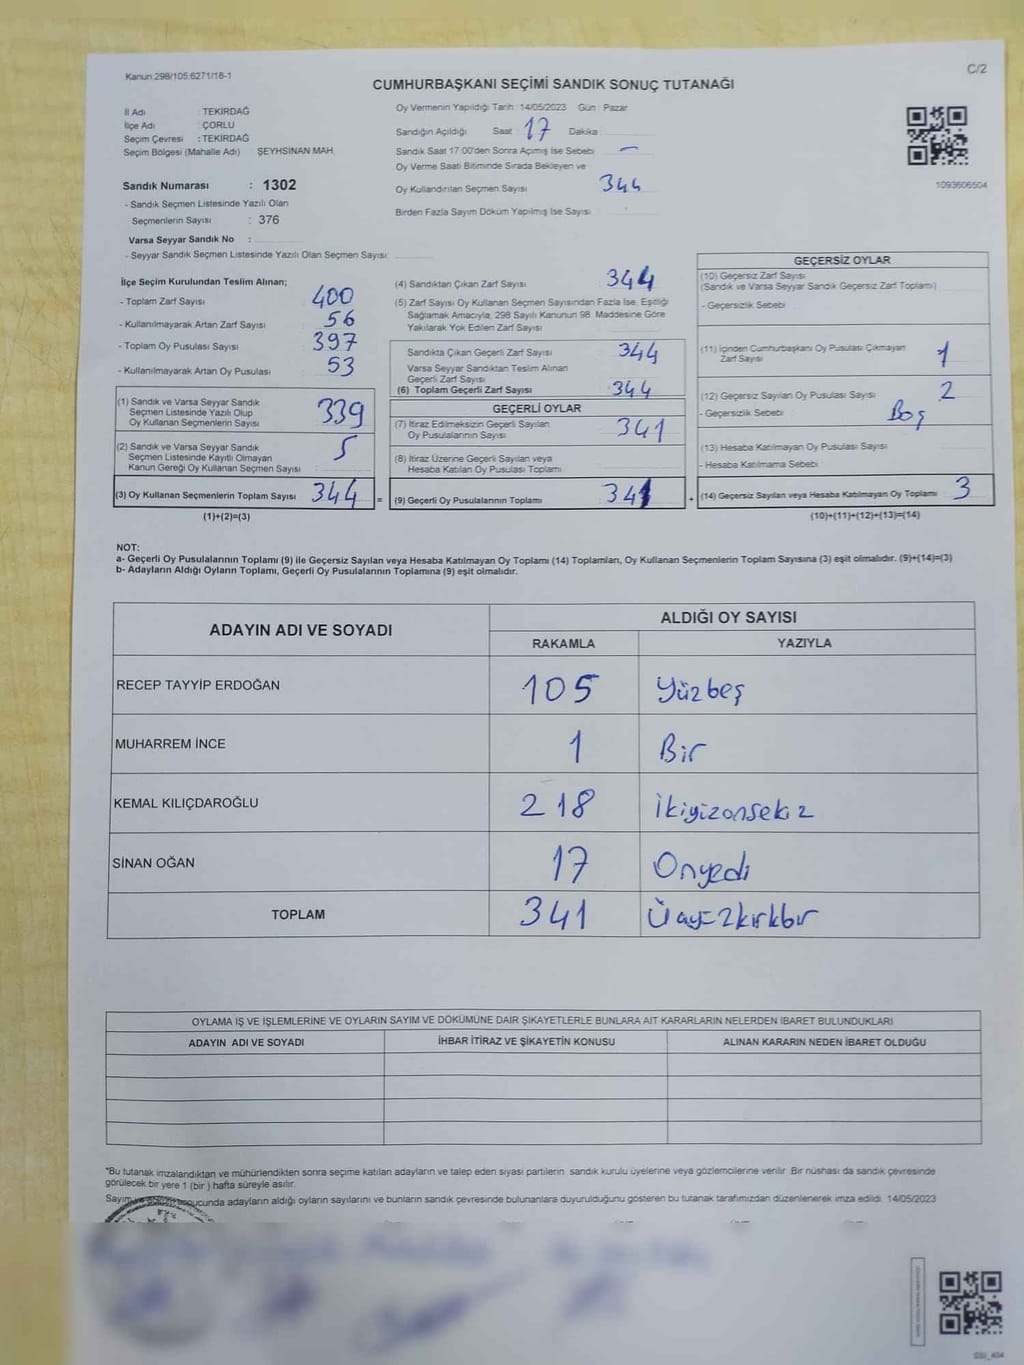 Kanun:298/105:6271/18-1
C/2
CUMHURBAŞKANI SEÇİMİ SANDIK SONUÇ TUTANAĞI
İl Adı : TEKİRDAĞ
İlçe Adı : ÇORLU
Seçim Çevresi : TEKİRDAĞ
Seçim Bölgesi (Mahalle Adı) ŞEYHSİNAN MAH.
Sandık Numarası : 1302
- Sandık Seçmen Listesinde Yazılı Olan
Seçmenlerin Sayısı : 376
Varsa Seyyar Sandık No :
- Seyyar Sandık Seçmen Listesinde Yazılı Olan Seçmen Sayısı:
Oy Vermenin Yapıldığı Tarih: 14/05/2023 Gün : Pazar
Sandığın Açıldığı Saat : 17 Dakika
Sandık Saat 17:00'den Sonra Açımış İse Sebebi : –
Oy Verme Saati Bitiminde Sırada Bekleyen ve
Oy Kullandırılan Seçmen Sayısı 344
Birden Fazla Sayım Döküm Yapılmış İse Sayısı
1093606504
İlçe Seçim Kurulundan Teslim Alınan;
- Toplam Zarf Sayısı : 400
- Kullanılmayarak Artan Zarf Sayısı : 56
- Toplam Oy Pusulası Sayısı : 397
- Kullanılmayarak Artan Oy Pusulası : 53
(1) Sandık ve Varsa Seyyar Sandık
Seçmen Listesinde Yazılı Olup
Oy Kullanan Seçmenlerin Sayısı : 339
(2) Sandık ve Varsa Seyyar Sandık
Seçmen Listesinde Kayıtlı Olmayan
Kanun Gereği Oy Kullanan Seçmen Sayısı : 5
(3) Oy Kullanan Seçmenlerin Toplam Sayısı : 344 =
(1)+(2)=(3)
(4) Sandıktan Çıkan Zarf Sayısı : 344
(5) Zarf Sayısı Oy Kullanan Seçmen Sayısından Fazla İse, Eşitliği
Sağlamak Amacıyla, 298 Sayılı Kanunun 98. Maddesine Göre
Yakılarak Yok Edilen Zarf Sayısı
Sandıkta Çıkan Geçerli Zarf Sayısı : 344
Varsa Seyyar Sandıktan Teslim Alınan
Geçerli Zarf Sayısı
(6) Toplam Geçerli Zarf Sayısı : 344
GEÇERLİ OYLAR
(7) İtiraz Edilmeksizin Geçerli Sayılan
Oy Pusulalarının Sayısı : 341
(8) İtiraz Üzerine Geçerli Sayılan veya
Hesaba Katılan Oy Pusulası Toplamı
(9) Geçerli Oy Pusulalarının Toplamı : 341 +
GEÇERSİZ OYLAR
(10) Geçersiz Zarf Sayısı
(Sandık ve Varsa Seyyar Sandık Geçersiz Zarf Toplamı)
- Geçersizlik Sebebi :
(11) İçinden Cumhurbaşkanı Oy Pusulası Çıkmayan
Zarf Sayısı : 1
(12) Geçersiz Sayılan Oy Pusulası Sayısı : 2
- Geçersizlik Sebebi : Boş
(13) Hesaba Katılmayan Oy Pusulası Sayısı
- Hesaba Katılmama Sebebi
(14) Geçersiz Sayılan veya Hesaba Katılmayan Oy Toplamı : 3
(10)+(11)+(12)+(13)=(14)
NOT:
a- Geçerli Oy Pusulalarının Toplamı (9) ile Geçersiz Sayılan veya Hesaba Katılmayan Oy Toplamı (14) Toplamları, Oy Kullanan Seçmenlerin Toplam Sayısına (3) eşit olmalıdır. (9)+(14)=(3)
b- Adayların Aldığı Oyların Toplamı, Geçerli Oy Pusulalarının Toplamına (9) eşit olmalıdır.
ADAYIN ADI VE SOYADI
ALDIĞI OY SAYISI
RAKAMLA YAZIYLA
RECEP TAYYİP ERDOĞAN 105 Yüzbeş
MUHARREM İNCE 1 Bir
KEMAL KILIÇDAROĞLU 218 İkiyizonsekiz
SİNAN OĞAN 17 Onyedi
TOPLAM 341 Üçyüzkırkbir
OYLAMA İŞ VE İŞLEMLERİNE VE OYLARIN SAYIM VE DÖKÜMÜNE DAİR ŞİKAYETLERLE BUNLARA AİT KARARLARIN NELERDEN İBARET BULUNDUKLARI
ADAYIN ADI VE SOYADI İHBAR İTİRAZ VE ŞİKAYETİN KONUSU ALINAN KARARIN NEDEN İBARET OLDUĞU
*Bu tutanak imzalandıktan ve mühürlendikten sonra seçime katılan adayların ve talep eden siyasi partilerin sandık kurulu üyelerine veya gözlemcilerine verilir. Bir nüshası da sandık çevresinde
görülecek bir yere 1 (bir) hafta süreyle asılır.
Sayım ve sonucunda adayların aldığı oyların sayılarını ve bunların sandık çevresinde bulunanlara duyurulduğunu gösteren bu tutanak tarafımızdan düzenlenerek imza edildi. 14/05/2023